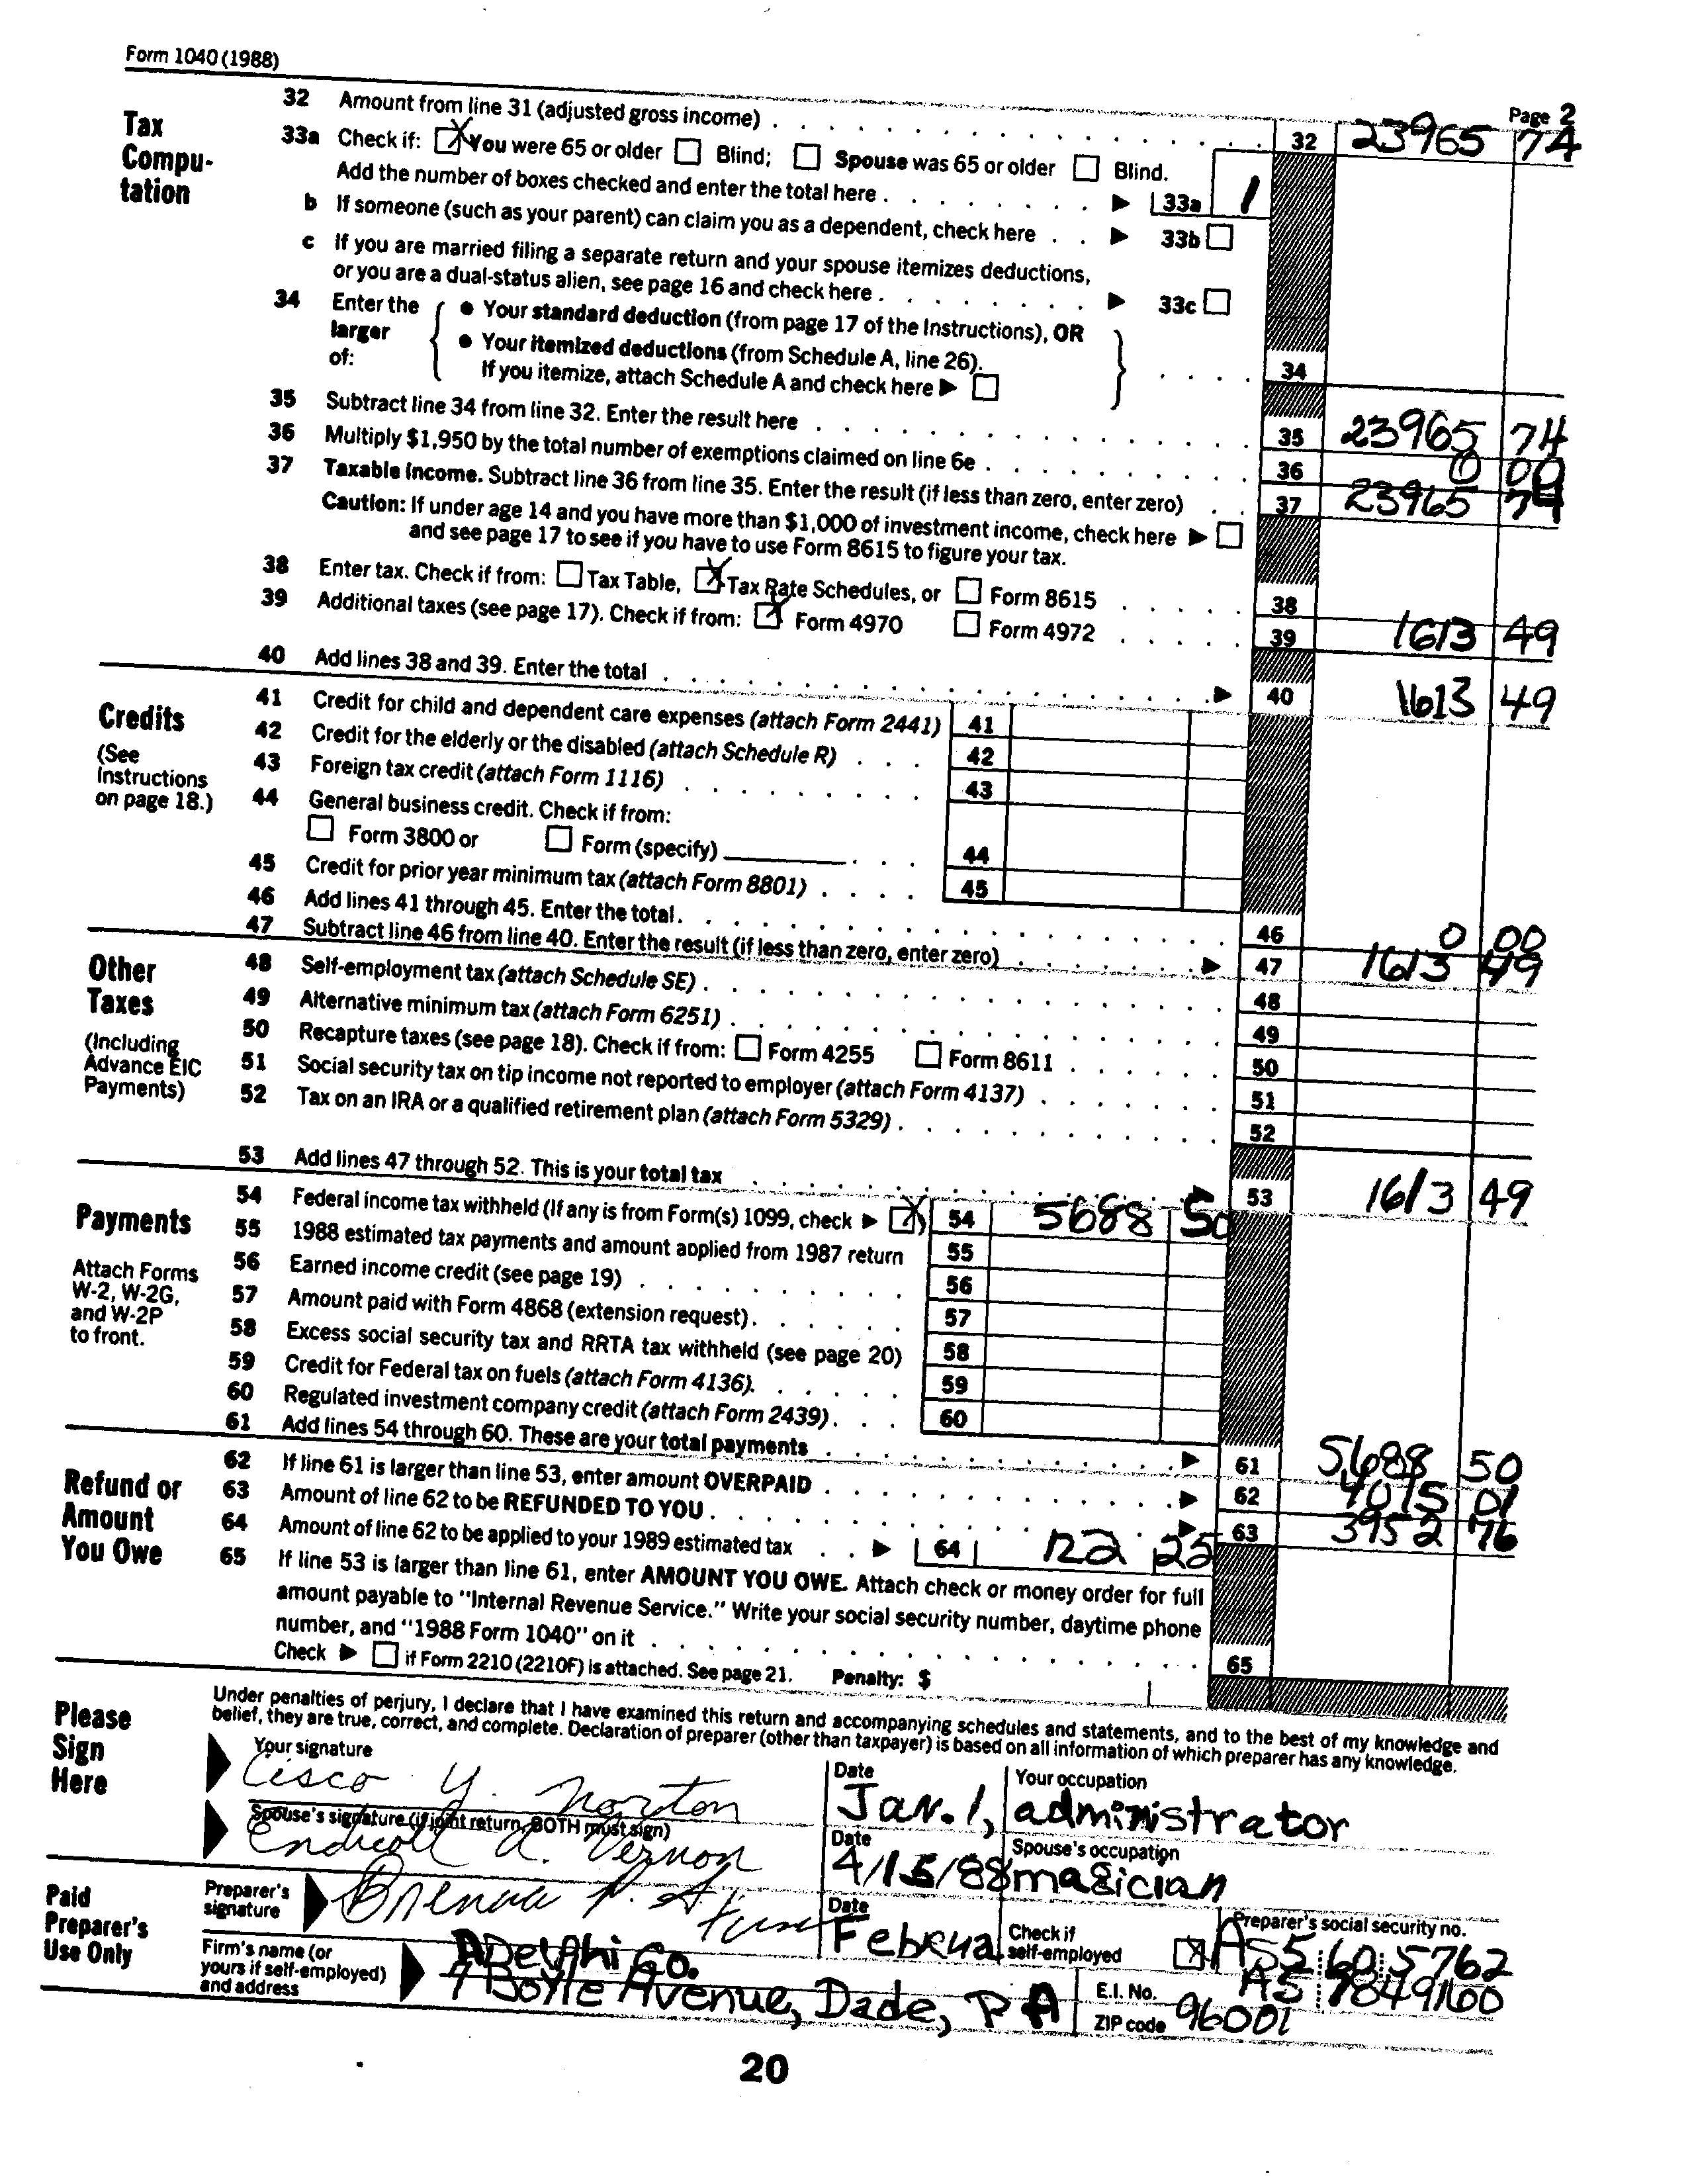 Form 1040 (1988)
Page 2
Tax Compu-tation
32 Amount from line 31 (adjusted gross income) 32 23965 74
33a Check if: [X] You were 65 or older [ ] Blind; [ ] Spouse was 65 or older [ ] Blind.
Add the number of boxes checked and enter the total here 33a 1
b If someone (such as your parent) can claim you as a dependent, check here 33b [ ]
c If you are married filing a separate return and your spouse itemizes deductions,
or you are a dual-status alien, see page 16 and check here 33c [ ]
34 Enter the larger of:
• Your standard deduction (from page 17 of the Instructions), OR
• Your itemized deductions (from Schedule A, line 26).
If you itemize, attach Schedule A and check here [ ] 34
35 Subtract line 34 from line 32. Enter the result here 35 23965 74
36 Multiply $1,950 by the total number of exemptions claimed on line 6e 36 0 00
37 Taxable Income. Subtract line 36 from line 35. Enter the result (if less than zero, enter zero) 37 23965 74
Caution: If under age 14 and you have more than $1,000 of investment income, check here [ ]
and see page 17 to see if you have to use Form 8615 to figure your tax.
38 Enter tax. Check if from: [ ] Tax Table, [X] Tax Rate Schedules, or [ ] Form 8615 38
39 Additional taxes (see page 17). Check if from: [X] Form 4970 [ ] Form 4972 39 1613 49
40 Add lines 38 and 39. Enter the total 40 1613 49
Credits
(See Instructions on page 18.)
41 Credit for child and dependent care expenses (attach Form 2441) 41
42 Credit for the elderly or the disabled (attach Schedule R) 42
43 Foreign tax credit (attach Form 1116) 43
44 General business credit. Check if from:
[ ] Form 3800 or [ ] Form (specify) 44
45 Credit for prior year minimum tax (attach Form 8801) 45
46 Add lines 41 through 45. Enter the total 46 0 00
47 Subtract line 46 from line 40. Enter the result (if less than zero, enter zero) 47 1613 49
Other Taxes
(Including Advance EIC Payments)
48 Self-employment tax (attach Schedule SE) 48
49 Alternative minimum tax (attach Form 6251) 49
50 Recapture taxes (see page 18). Check if from: [ ] Form 4255 [ ] Form 8611 50
51 Social security tax on tip income not reported to employer (attach Form 4137) 51
52 Tax on an IRA or a qualified retirement plan (attach Form 5329) 52
53 Add lines 47 through 52. This is your total tax 53 1613 49
Payments
Attach Forms W-2, W-2G, and W-2P to front.
54 Federal income tax withheld (If any is from Form(s) 1099, check [X]) 54 5688 50
55 1988 estimated tax payments and amount applied from 1987 return 55
56 Earned income credit (see page 19) 56
57 Amount paid with Form 4868 (extension request) 57
58 Excess social security tax and RRTA tax withheld (see page 20) 58
59 Credit for Federal tax on fuels (attach Form 4136) 59
60 Regulated investment company credit (attach Form 2439) 60
61 Add lines 54 through 60. These are your total payments 61 5688 50
Refund or Amount You Owe
62 If line 61 is larger than line 53, enter amount OVERPAID 62 4075 01
63 Amount of line 62 to be REFUNDED TO YOU 63 3952 76
64 Amount of line 62 to be applied to your 1989 estimated tax 64 122 25
65 If line 53 is larger than line 61, enter AMOUNT YOU OWE. Attach check or money order for full
amount payable to "Internal Revenue Service." Write your social security number, daytime phone
number, and "1988 Form 1040" on it 65
Check [ ] if Form 2210 (2210F) is attached. See page 21. Penalty: $
Please Sign Here
Under penalties of perjury, I declare that I have examined this return and accompanying schedules and statements, and to the best of my knowledge and
belief, they are true, correct, and complete. Declaration of preparer (other than taxpayer) is based on all information of which preparer has any knowledge.
Your signature Cisco Y. Norton
Date Jan. 1,
Your occupation administrator
Spouse's signature (if joint return, BOTH must sign) Endicott A. Vernon
Date 4/15/88
Spouse's occupation magician
Paid Preparer's Use Only
Preparer's signature Brenda P.
Date Februa
Check if self-employed [X]
Preparer's social security no. AS5 60 5762
Firm's name (or yours if self-employed) and address Adelphi Co.
7 Boyle Avenue, Dade, PA
E.I. No. AS 7849160
ZIP code 96001
20